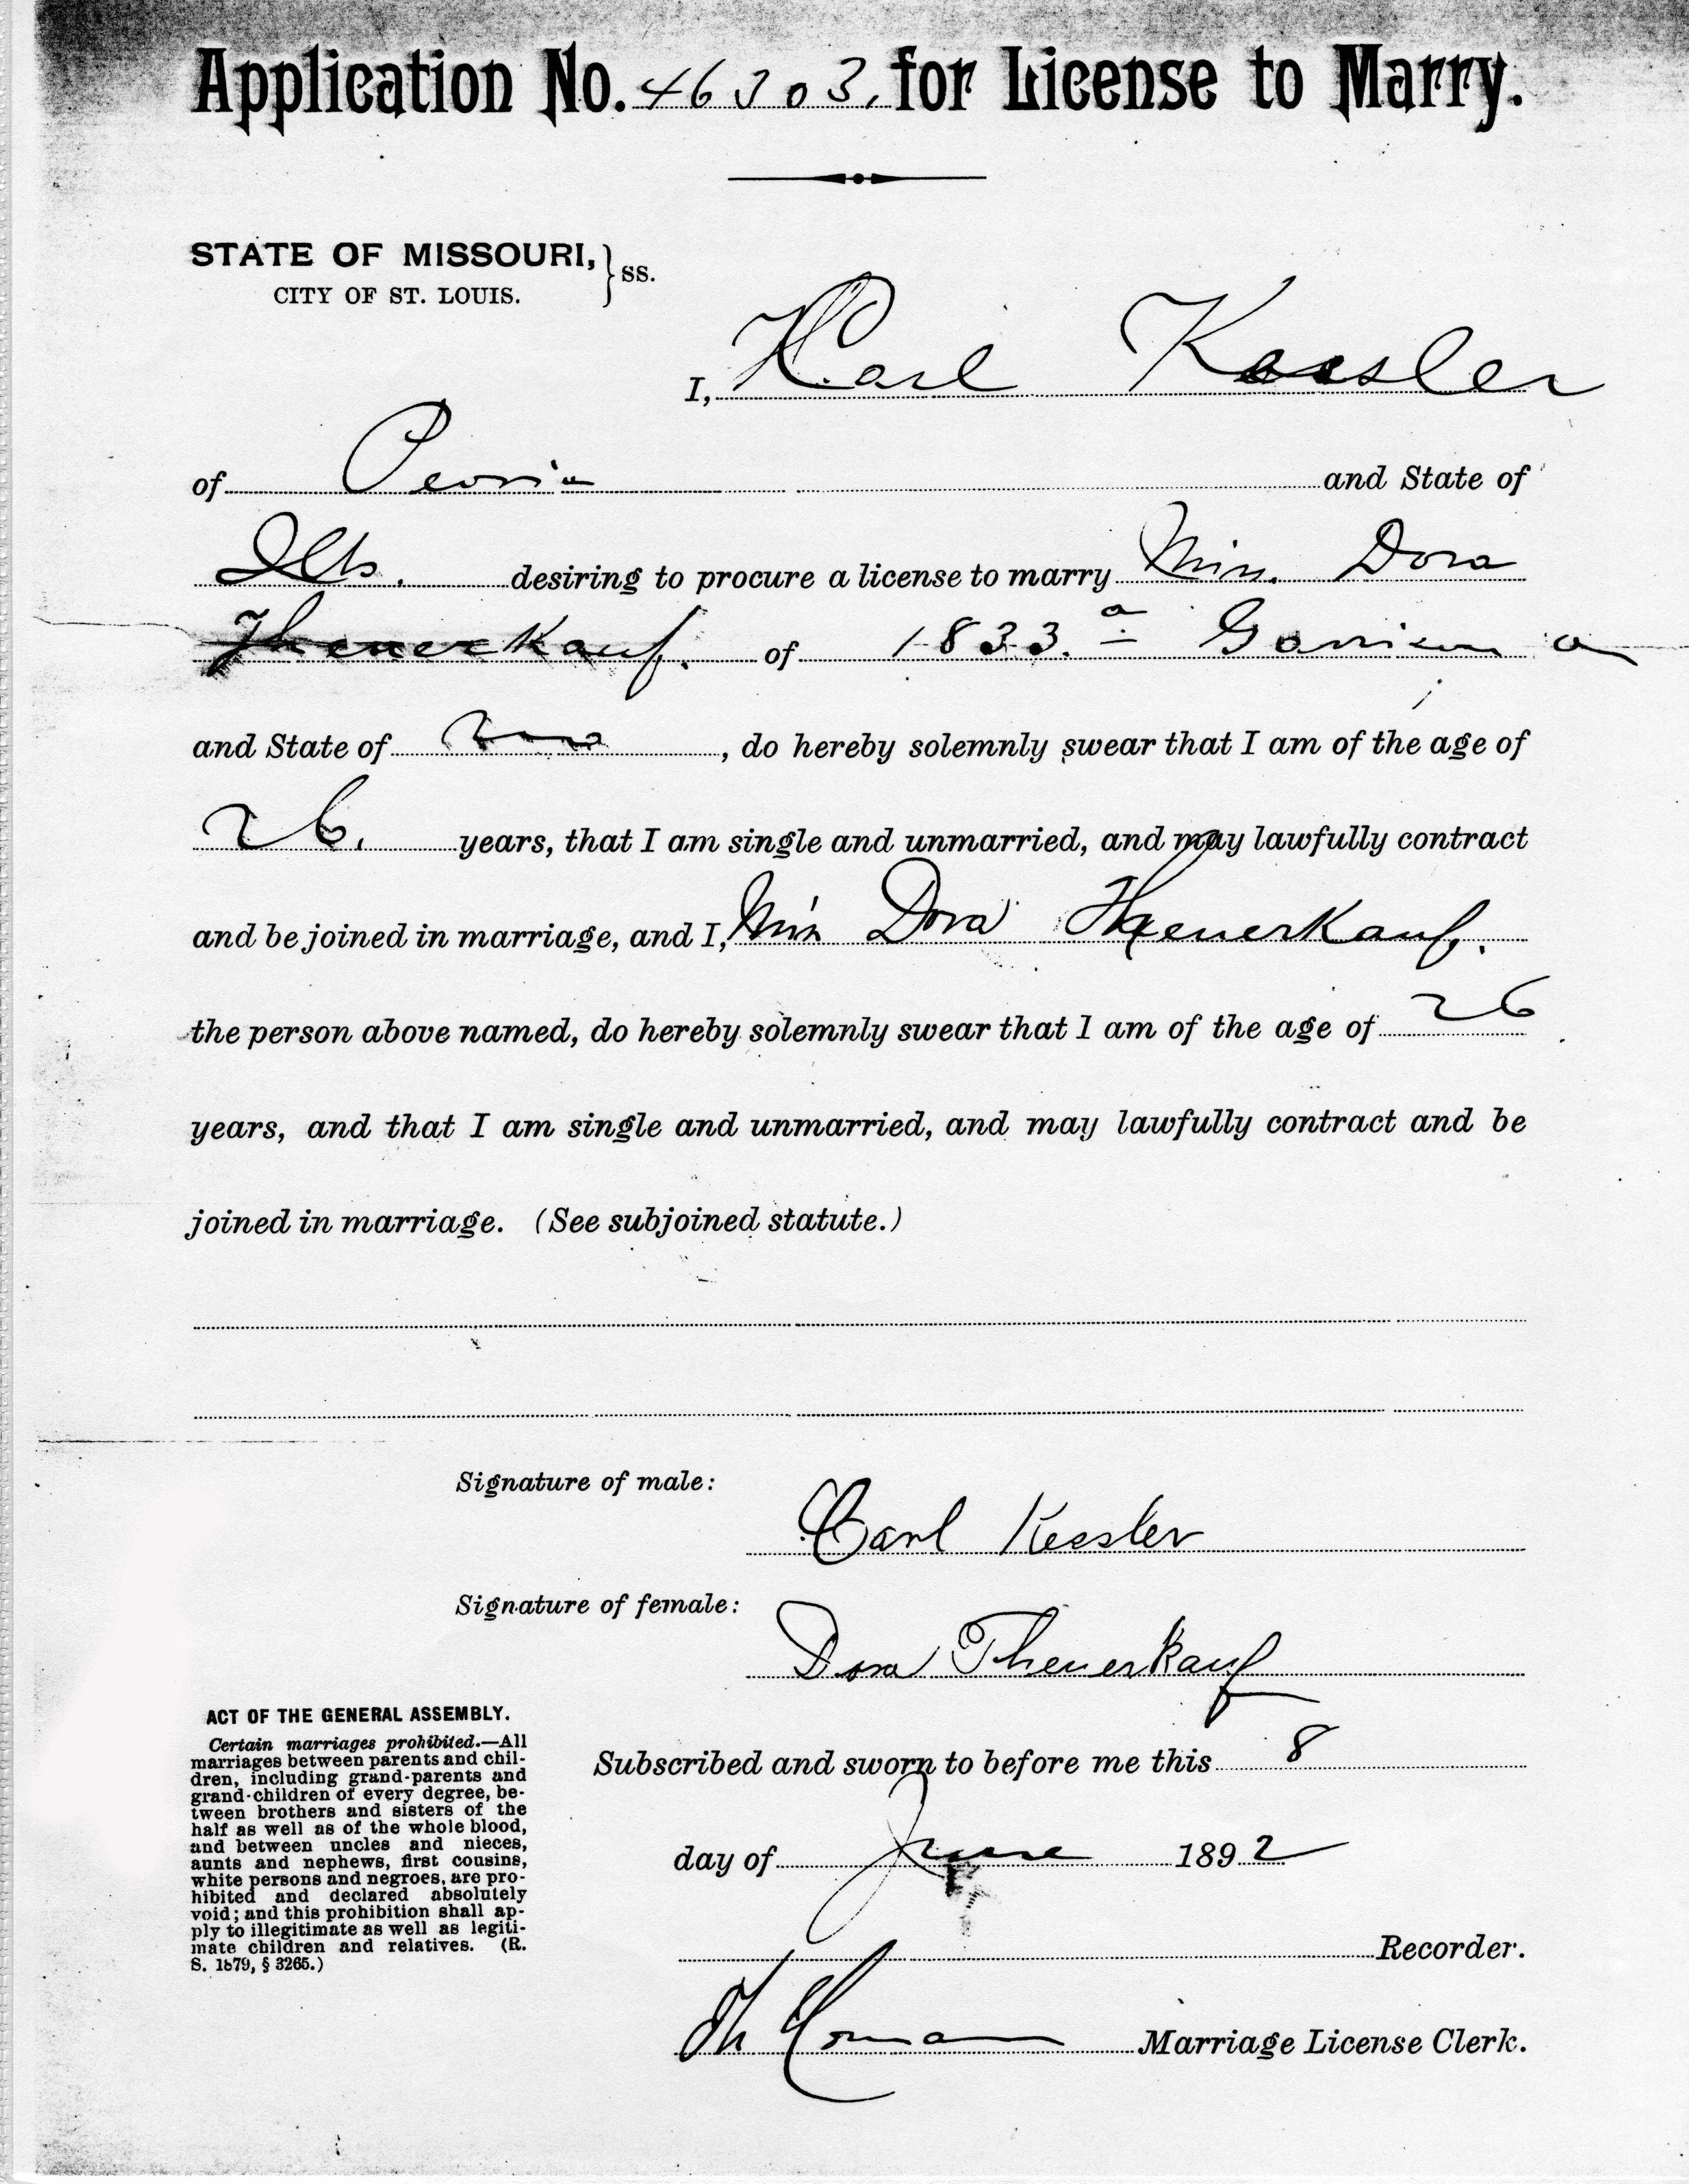 Application No. 46303. for License to Marry.
STATE OF MISSOURI, } ss.
CITY OF ST. LOUIS.
I, Karl Kessler
of Peoria and State of
Ills. desiring to procure a license to marry Miss. Dora
Theuerkauf. of 1833. a Garrison a
and State of , do hereby solemnly swear that I am of the age of
26. years, that I am single and unmarried, and may lawfully contract
and be joined in marriage, and I, Miss Dora Theuerkauf.
the person above named, do hereby solemnly swear that I am of the age of 26
years, and that I am single and unmarried, and may lawfully contract and be
joined in marriage. (See subjoined statute.)
Signature of male:
Carl Kessler
Signature of female:
Dora Theuerkauf
ACT OF THE GENERAL ASSEMBLY.
Certain marriages prohibited.—All
marriages between parents and chil-
dren, including grand-parents and
grand-children of every degree, be-
tween brothers and sisters of the
half as well as of the whole blood,
and between uncles and nieces,
aunts and nephews, first cousins,
white persons and negroes, are pro-
hibited and declared absolutely
void; and this prohibition shall ap-
ply to illegitimate as well as legiti-
mate children and relatives. (R.
S. 1879, § 3265.)
Subscribed and sworn to before me this 8
day of June 1892
Recorder.
Marriage License Clerk.